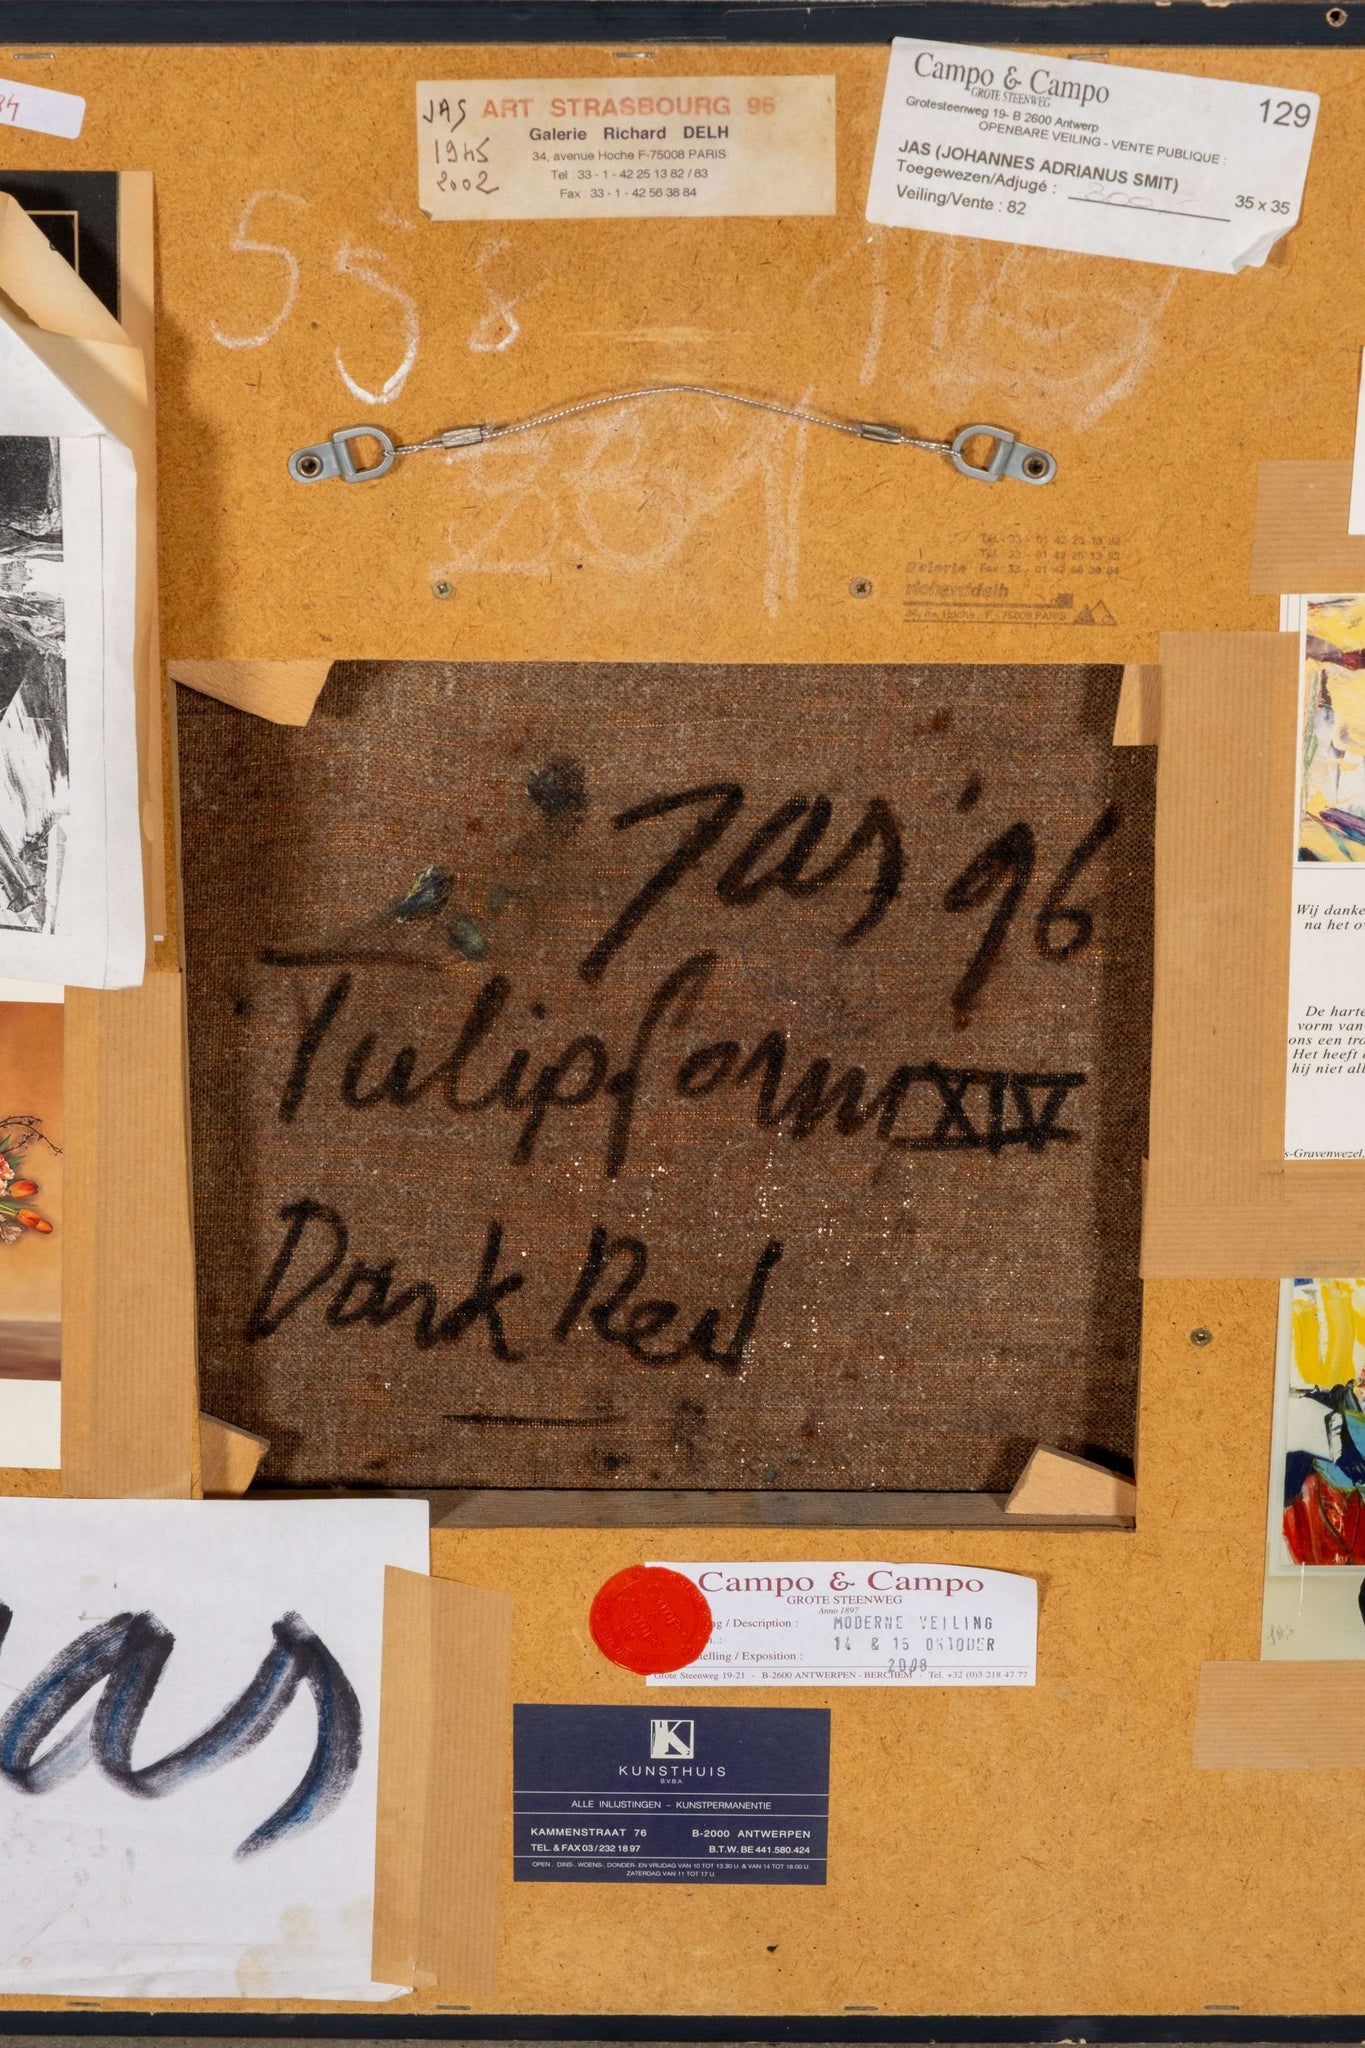 84
JAS
1945
2002
ART STRASBOURG 96
Galerie Richard DELH
34, avenue Hoche F-75008 PARIS
Tel : 33 - 1 - 42 25 13 82 / 83
Fax : 33 - 1 - 42 56 38 84
Campo & Campo
GROTE STEENWEG
Grotesteenweg 19- B 2600 Antwerp
129
OPENBARE VEILING - VENTE PUBLIQUE :
JAS (JOHANNES ADRIANUS SMIT)
Toegewezen/Adjugé : 800,-
35 x 35
Veiling/Vente : 82
558
Tel. 33 - 01 42 25 13 82
Tel. 33 - 01 42 25 13 83
Galerie Fax : 33 - 01 42 56 38 84
richard delh
34, av. Hoche F - 75008 PARIS
Jas '96
Tulipform XIV
Dark Red
Wij danke
na het o
De harte
vorm van
ons een tro
Het heeft
hij niet all
s-Gravenwezel,
as
Campo & Campo
GROTE STEENWEG
Anno 1897
ng / Description : MODERNE VEILING
n. : 14 & 15 OKTOBER
telling / Exposition : 2008
Grote Steenweg 19-21 - B-2600 ANTWERPEN - BERCHEM - Tel. +32 (0)3 218 47 77
K
KUNSTHUIS
BVBA
ALLE INLIJSTINGEN – KUNSTPERMANENTIE
KAMMENSTRAAT 76 B-2000 ANTWERPEN
TEL. & FAX 03/232 18 97 B.T.W. BE 441.580.424
OPEN : DINS-, WOENS-, DONDER- EN VRIJDAG VAN 10 TOT 13.30 U. & VAN 14 TOT 18.00 U.
ZATERDAG VAN 11 TOT 17 U.